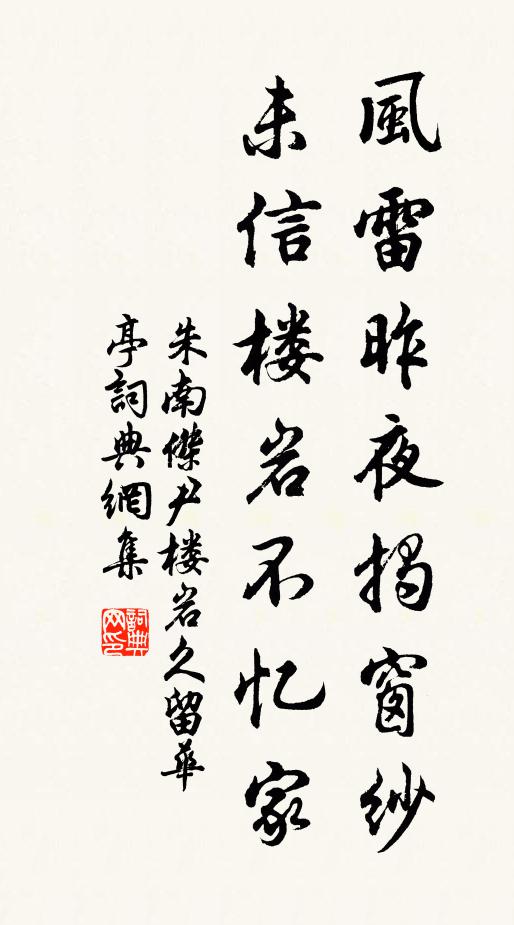 風雷昨夜揭窗紗
未信楼岩不忆家
朱南傑尹楼岩久留華
亭詞典網集
詞典网印